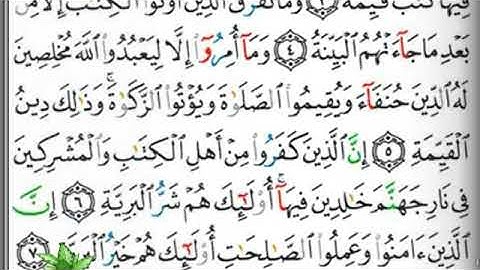 فِيهَا كُتُبٌ قَيِّمَةٌ ٣ وَمَا تَفَرَّقَ الَّذِينَ أُوتُوا الْكِتَٰبَ إِلَّا مِنْ
بَعْدِ مَا جَآءَتْهُمُ الْبَيِّنَةُ ٤ وَمَآ أُمِرُوٓا إِلَّا لِيَعْبُدُوا اللَّهَ مُخْلِصِينَ
لَهُ الدِّينَ حُنَفَآءَ وَيُقِيمُوا الصَّلَوٰةَ وَيُؤْتُوا الزَّكَوٰةَ ۚ وَذَٰلِكَ دِينُ
الْقَيِّمَةِ ٥ إِنَّ الَّذِينَ كَفَرُوا مِنْ أَهْلِ الْكِتَٰبِ وَالْمُشْرِكِينَ
فِي نَارِ جَهَنَّمَ خَٰلِدِينَ فِيهَآ ۚ أُو۟لَٰٓئِكَ هُمْ شَرُّ الْبَرِيَّةِ ٦ إِنَّ
الَّذِينَ ءَامَنُوا وَعَمِلُوا الصَّٰلِحَٰتِ أُو۟لَٰٓئِكَ هُمْ خَيْرُ الْبَرِيَّةِ ٧